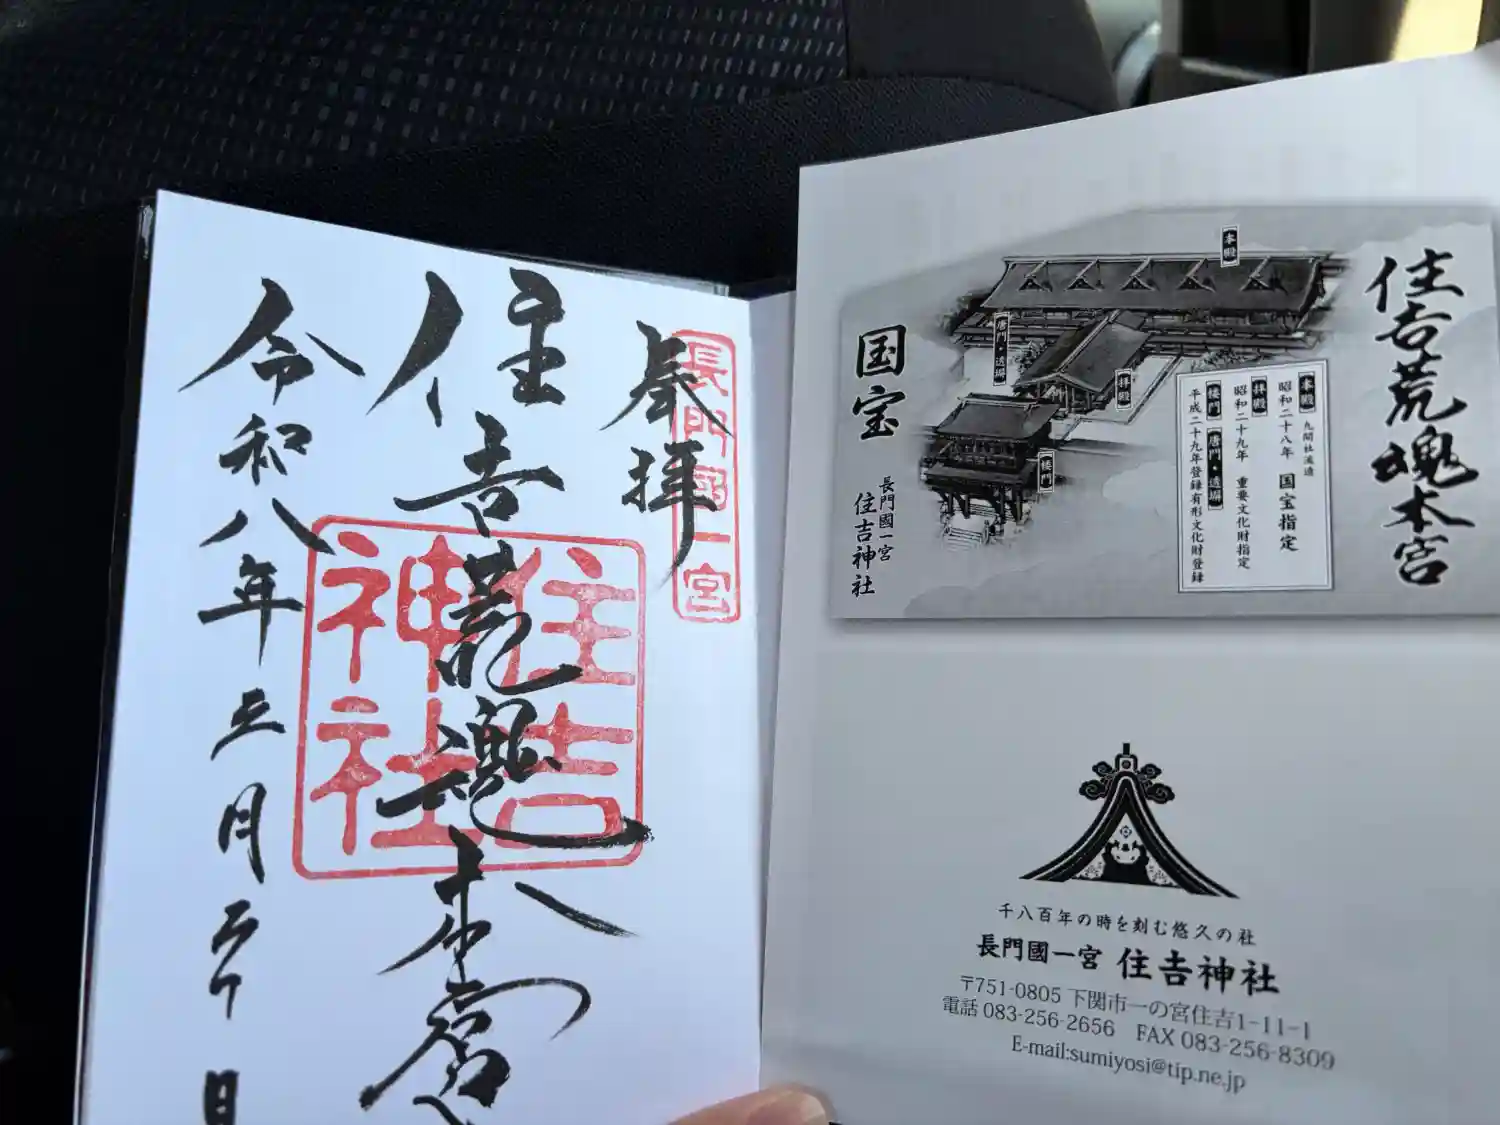 奉拝
長門國一宮
住吉荒魂本宮
住吉神社
令和八年三月
日
住吉荒魂本宮
国宝
長門國一宮
住吉神社
本殿
唐門・透塀
拝殿
楼門
本殿 九間社流造
昭和二十八年 国宝指定
拝殿
昭和二十九年 重要文化財指定
楼門 唐門・透塀
平成二十九年登録有形文化財登録
千八百年の時を刻む悠久の社
長門國一宮 住吉神社
〒751-0805 下関市一の宮住吉1-11-1
電話 083-256-2656 FAX 083-256-8309
E-mail:sumiyosi@tip.ne.jp